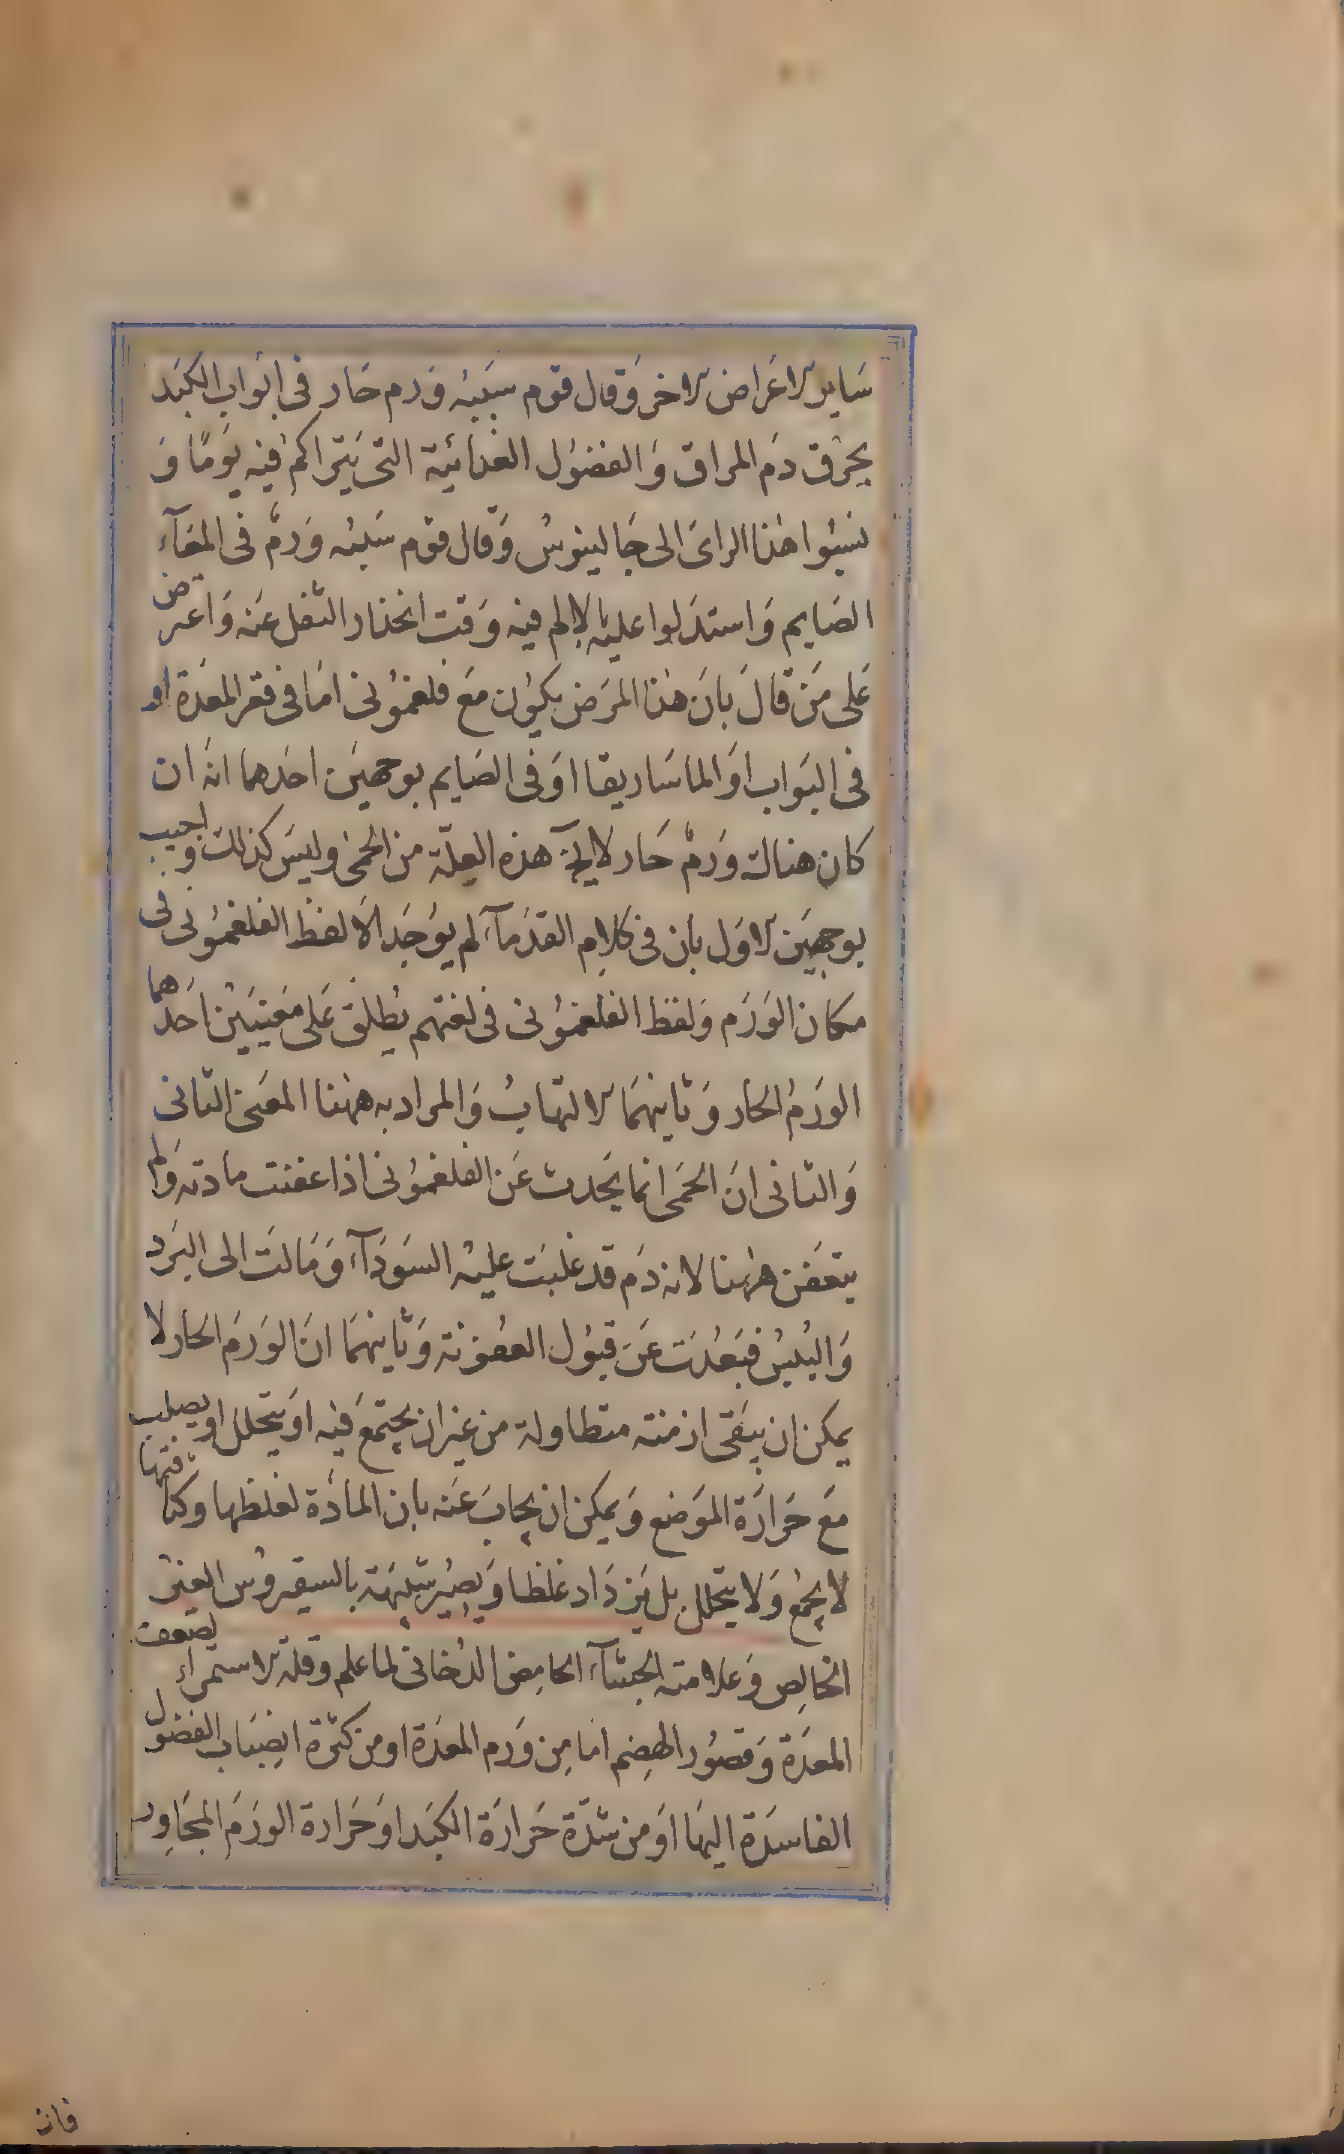 ساير الاعراض الاخر وقال قوم سببه ورم حار فى ابواب الكبد
يحرق دم المراق والفضول الغذائية التى يتراكم فيه يوما و
نسبوا هذا الراى الى جالينوس وقال قوم سببه ورم فى المعآء
الصايم واستدلوا عليه بالالم فيه وقت انحدار الثفل عنه واعترض
على من قال بان هذا المرض يكون مع فلغمونى اما فى قعر المعدة او
فى البواب او الماساريقا او فى الصايم بوجهين احدهما انه ان
كان هناك ورم حار لا يخ هذه العلة من الحمى وليس كذلك واجيب
بوجهين الاول بان فى كلام القدمآء لم يوجد الا لفظ الفلغمونى فى
مكان الورم ولفظ الفلغمونى فى لغتهم يطلق على معنيين احدهما
الورم الحار وثانيهما الالتهاب والمراد به ههنا المعنى الثانى
والثانى ان الحمى انما يحدث عن الفلغمونى اذا عفنت مادته ولم
يتعفن ههنا لانه دم قد غلبت عليه السودآء ومالت الى البرد
واليبس فبعدت عن قبول العفونة وثانيهما ان الورم الحار لا
يمكن ان يبقى ازمنته متطاولة من غير ان يجتمع فيه او يتحلل او يصلب
مع حرارة الموضع ويمكن ان يجاب عنه بان المادة لغلظها وكثافتها
لا يجمع ولا يتحلل بل يزداد غلظا ويصير شبيهة بالسقيروس الغير
الخالص وعلامته الجشآء الحامض الدخانى لما علم وقلة الاستمراء لضعف
المعدة وقصور الهضم اما من ورم المعدة او من كثرة انصباب الفضول
الفاسدة اليها او من شدة حرارة الكبد او حرارة الورم المجاور
فان